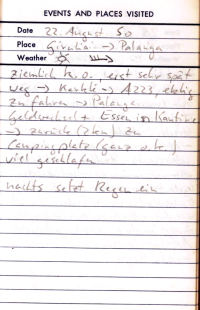 EVENTS AND PLACES VISITED
Date 22. August So
Place Girulia → Palanga
Weather
ziemlich k.o., erst sehr spät
weg → Karklė → A223, eklig
zu fahren → Palanga
Geldwechsel + Essen in Kantine
→ zurück (2km) zu
Campingplatz (ganz o.k.)
viel geschlafen
nachts setzt Regen ein